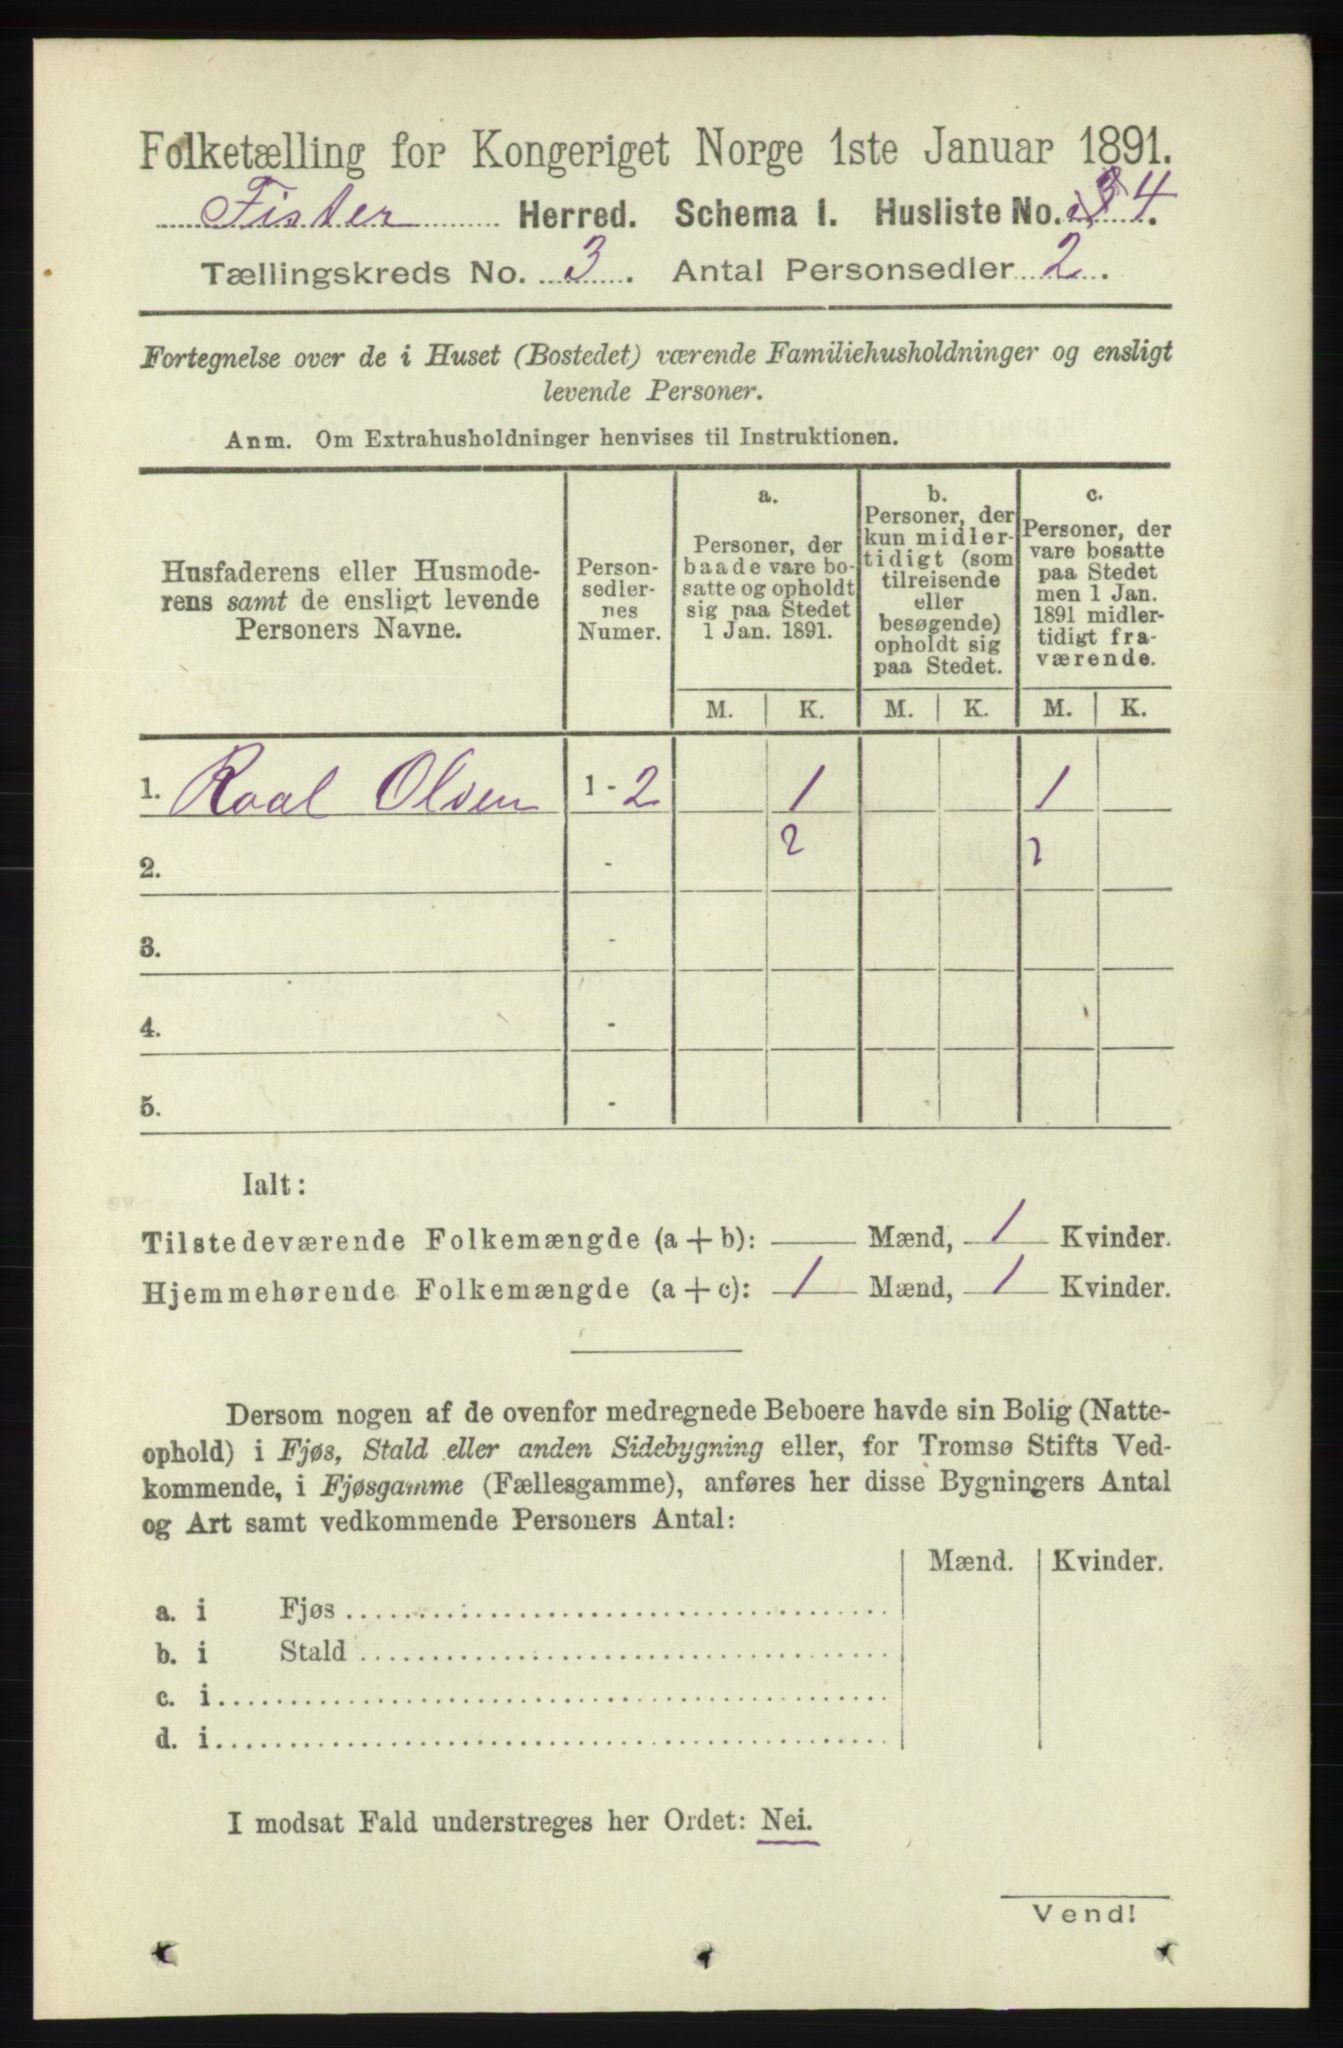 Folketælling for Kongeriget Norge 1ste Januar 1891.
Fister Herred. Schema 1. Husliste No. 34.
Tællingskreds No. 3. Antal Personsedler 2.
Fortegnelse over de i Huset (Bostedet) værende Familiehusholdninger og ensligt
levende Personer.
Anm. Om Extrahusholdninger henvises til Instruktionen.
Husfaderens eller Husmode-
rens samt de ensligt levende
Personers Navne.
Person-
sedler-
nes
Numer.
a.
Personer, der
baade vare bo-
satte og opholdt
sig paa Stedet
1 Jan. 1891.
b.
Personer, der
kun midler-
tidigt (som
tilreisende
eller
besøgende)
opholdt sig
paa Stedet.
c.
Personer, der
vare bosatte
paa Stedet
men 1 Jan.
1891 midler-
tidigt fra-
værende.
M. K. M. K. M. K.
1. Roal Olsen 1 - 2 1 1
2. - 2 2
3. -
4. -
5. -
Ialt:
Tilstedeværende Folkemængde (a + b): — Mænd, 1 Kvinder.
Hjemmehørende Folkemængde (a + c): 1 Mænd, 1 Kvinder.
Dersom nogen af de ovenfor medregnede Beboere havde sin Bolig (Natte-
ophold) i Fjøs, Stald eller anden Sidebygning eller, for Tromsø Stifts Ved-
kommende, i Fjøsgamme (Fællesgamme), anføres her disse Bygningers Antal
og Art samt vedkommende Personers Antal:
Mænd. Kvinder.
a. i Fjøs
b. i Stald
c. i
d. i
I modsat Fald understreges her Ordet: Nei.
Vend!